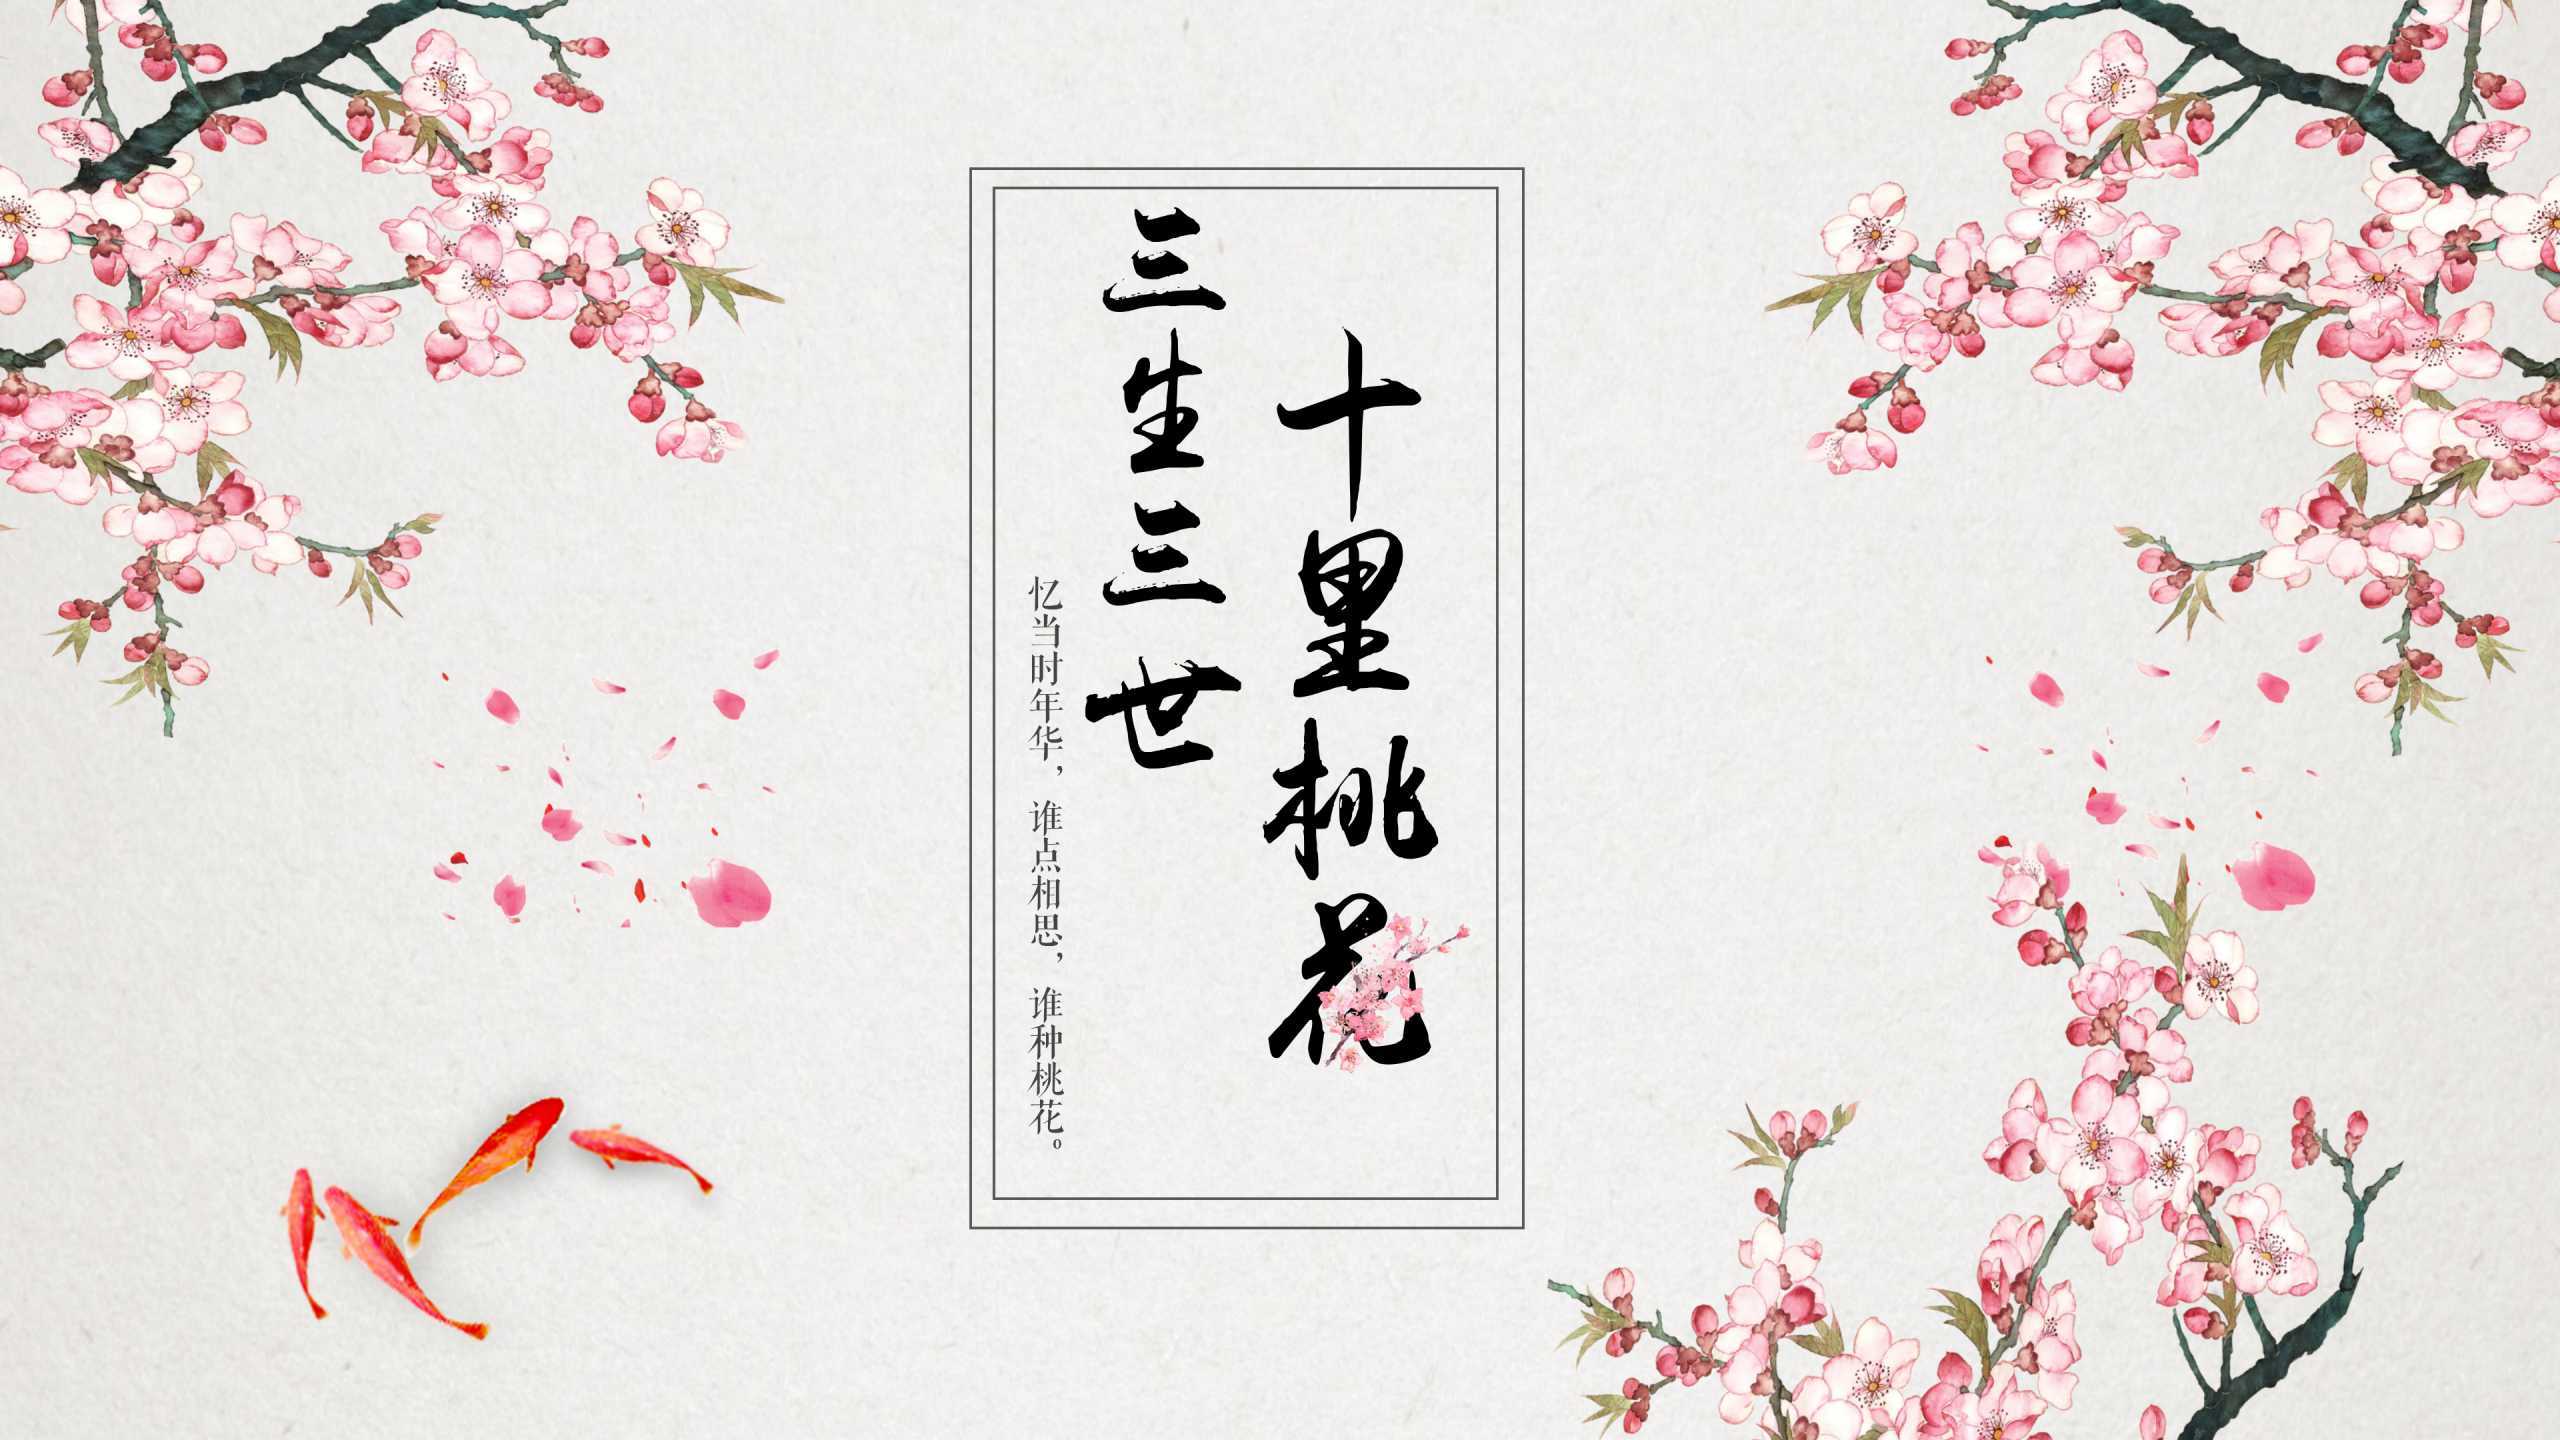 三生三世
十里桃花
忆当时年华，谁点相思，谁种桃花。